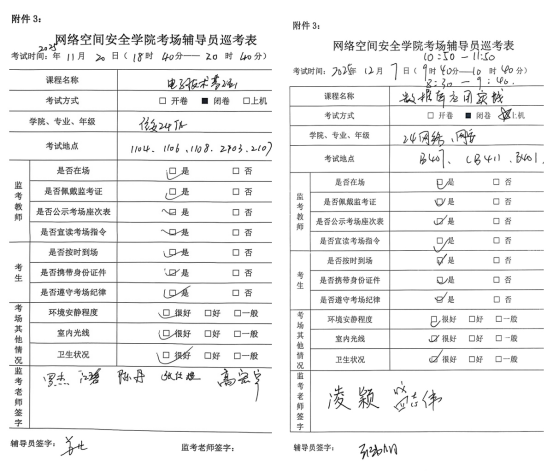 附件 3:
网络空间安全学院考场辅导员巡考表
考试时间: 2025年 11 月 20 日（18时 40分—— 20 时 40分）
课程名称
电子技术基础
考试方式 □ 开卷 ■ 闭卷 □上机
学院、专业、年级
考试地点 1104、1106、1108、2903、2107
监考教师
是否在场 □ 是 □ 否
是否佩戴监考证 □ 是 □ 否
是否公示考场座次表 □ 是 □ 否
是否宣读考场指令 □ 是 □ 否
考生
是否按时到场 □ 是 □ 否
是否携带身份证件 □ 是 □ 否
是否遵守考场纪律 □ 是 □ 否
考场其他情况
环境安静程度 □ 很好 □好 □一般
室内光线 □ 很好 □好 □一般
卫生状况 □ 很好 □好 □一般
监考老师签字
罗杰 江碧 陈丹
辅导员签字: 监考老师签字:
附件 3:
网络空间安全学院考场辅导员巡考表
10:50—11:50
考试时间: 2025年 12 月 7 日（9时 40分—10 时 40分）
8:30—9:40
课程名称 数据库应用实践
考试方式 □ 开卷 ■ 闭卷 上机
学院、专业、年级 24网络、网安
考试地点 B407、CB411、B401
监考教师
是否在场 □ 是 □ 否
是否佩戴监考证 □ 是 □ 否
是否公示考场座次表 □ 是 □ 否
是否宣读考场指令 □ 是 □ 否
考生
是否按时到场 □ 是 □ 否
是否携带身份证件 □ 是 □ 否
是否遵守考场纪律 □ 是 □ 否
考场其他情况
环境安静程度 □ 很好 □好 □一般
室内光线 □ 很好 □好 □一般
卫生状况 □ 很好 □好 □一般
监考老师签字
凌颖
辅导员签字: 监考老师签字: